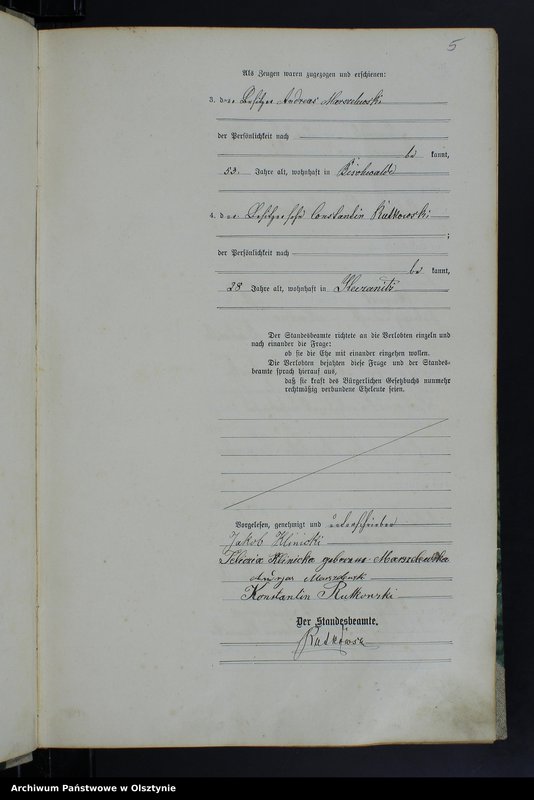 5
Als Zeugen waren zugezogen und erschienen:
3. der Besitzer Andreas
der Persönlichkeit nach
be kannt,
53 Jahre alt, wohnhaft in
4. der Besitzersohn Constantin Rutkowski
;
der Persönlichkeit nach
be kannt,
28 Jahre alt, wohnhaft in
Der Standesbeamte richtete an die Verlobten einzeln und
nach einander die Frage:
ob sie die Ehe mit einander eingehen wollen.
Die Verlobten bejahten diese Frage und der Standes-
beamte sprach hierauf aus,
daß sie kraft des Bürgerlichen Gesetzbuchs nunmehr
rechtmäßig verbundene Eheleute seien.
Vorgelesen, genehmigt und unterschrieben
Jakob Klinicki
Klinicka geborene Marszelewska
Konstantin Rutkowski
Der Standesbeamte.
Archiwum Państwowe w Olsztynie